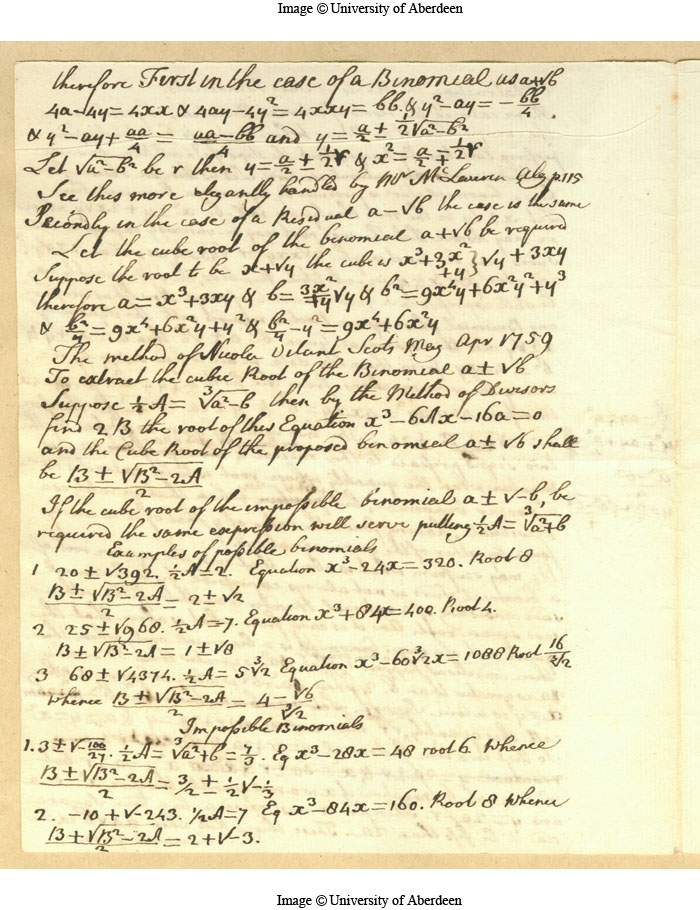 Image © University of Aberdeen
therefore First in the case of a Binomial as a+√b
4a-4y=4xx & 4ay-4y²=4xxy=bb. & y²-ay=-bb/4.
& y²-ay+aa/4=aa-bb/4 and y=a/2±1/2√a²-b²
Let √a²-b² be r then y=a/2±1/2r & x²=a/2∓1/2r
See this more elegantly handled by Mr McLauren Alg p115
Secondly in the case of a Residual a-√b the case is the same
Let the cube root of the binomial a+√b be required
Suppose the root to be x+√y the cube is x³+3x²+y}√y+3xy
therefore a=x³+3xy & b=3x²+y√y & b²=9x⁴y+6x²y²+y³
& b²/y=9x⁴+6x²y+y² & b²/y-y²=9x⁴+6x²y
The method of Nicola Vilant Scots Mag Apr 1759
To extract the cubic Root of the Binomial a±√b
Suppose ½A=³√a²-b then by the Method of Divisors
find 2B the root of this Equation x³-6Ax-16a=0
and the Cube Root of the proposed binomial a±√b shall
be B±√B²-2A/2
If the cube root of the impossible binomial a±√-b, be
required the same expression will serve putting ½A=³√a²+b
Examples of possible binomials
1 20±√392. ½A=2. Equation x³-24x=320. Root 8
B±√B²-2A/2=2±√2
2 25±√968. ½A=7. Equation x³+84x=400. Root 4.
B±√B²-2A=1±√8
3 68±√4374. ½A=5³√2 Equation x³-60³√2x=1088 Root 16/³√2
whence B±√B²-2A/2=4-√6/³√2
Impossible Binomials
1. 3±√-100/27. ½A=³√a²+b=7/3. Eq x³-28x=48 root 6. Whence
B±√B²-2A/2=3/2±½√-1/3
2. -10+√-243. ½A=7 Eq x³-84x=160. Root 8 Whence
B±√B²-2A/2=2+√-3.
Image © University of Aberdeen